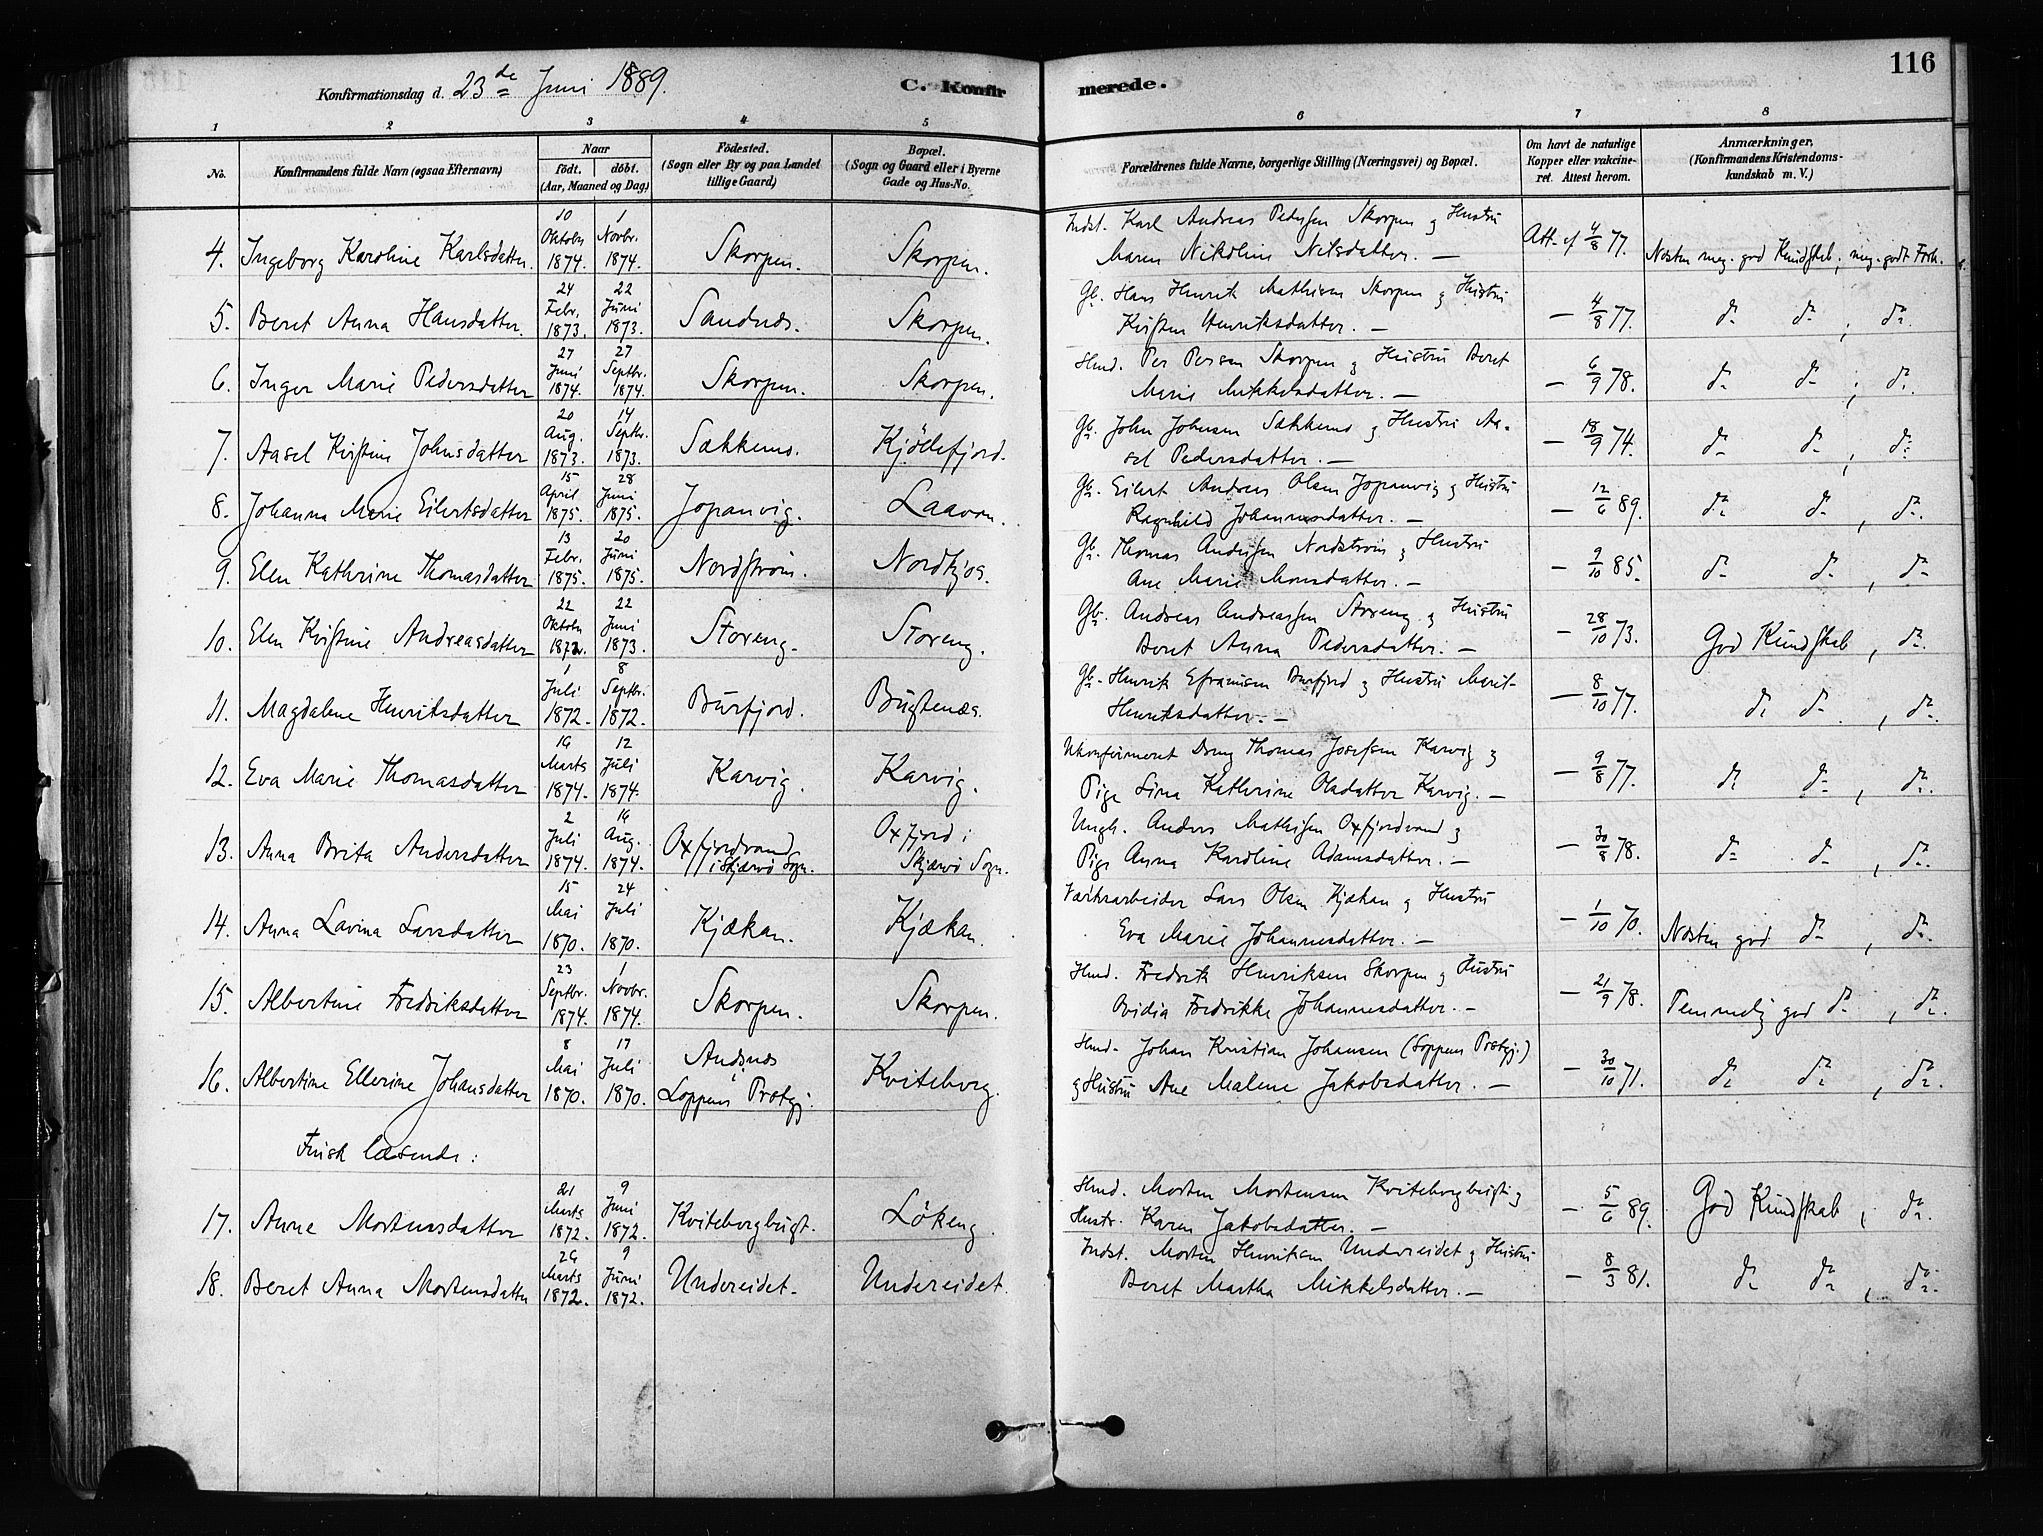 116
Konfirmationsdag d. 23de Juni 1889.
C. Konfirmerede.
1 2 3 4 5 6 7 8
No.
Konfirmandens fulde Navn (ogsaa Efternavn)
Naar
födt. döbt.
(Aar, Maaned og Dag)
Födested.
(Sogn eller By og paa Landet
tillige Gaard)
Bopæl.
(Sogn og Gaard eller i Byerne
Gade og Hus-No.
Forældrenes fulde Navne, borgerlige Stilling (Næringsvei) og Bopæl.
Om havt de naturlige
Kopper eller vakcine-
ret. Attest herom.
Anmærkninger,
(Konfirmandens Kristendoms-
kundskab m. V.)
4. Ingeborg Karoline Karlsdatter. 10 Oktober 1874. 1 Novbr. 1874. Skorpen. Skorpen. Indst. Karl Andreas Pedersen Skorpen og Hustru
Maren Nikoline Nilsdatter. — Att. af 4/8 77. Næsten meg. god Kundskab; meg. godt Forh.
5. Beret Anna Hansdatter. 24 Febr. 1873. 22 Juni 1873. Sandnes. Skorpen. Gb. Hans Henrik Mathisen Skorpen og Hustru
Kristen Henriksdatter. — — 4/8 77. do do ; do.
6. Inger Marie Pedersdatter 27 Juni 1874. 27 Septbr. 1874. Skorpen. Skorpen. Hmd. Per Persen Skorpen og Hustru Beret
Marie Mikkelsdatter. — — 6/9 78. do do ; do.
7. Aasel Kristine Johnsdatter 20 Aug. 1873. 14 Septbr. 1873. Sækkemo. Kjöllefjord. Gb. John Johnsen Sækkemo og Hustru Aa-
sel Pedersdatter. — — 18/9 74. do do , do
8. Johanna Marie Eilertsdatter 15 April 1875. 28 Juni 1875. Jopanvig. Laavan. Gb. Eilert Andreas Olsen Jopanvig og Hustru
Ragnhild Johannesdatter. — — 12/6 89. do do , do.
9. Elen Kathrine Thomasdatter 13 Febr. 1875. 20 Juni 1875. Nordström. Nordkjos. Gb. Thomas Andersen Nordström og Hustru
Ane Marie Monsdatter. — — 9/10 85. do do , do
10. Elen Kristine Andreasdatter 22 Oktober 1872. 22 Juni 1873. Storeng. Storeng. Gb. Andreas Andreassen Storeng og Hustru
Beret Anna Pedersdatter. — — 28/10 73. God Kundskab , do.
11. Magdalene Henriksdatter 1 Juli 1872. 8 Septbr. 1872. Burfjord. Bugtenæs. Gb. Henrik Efraimsen Burfjord og Hustru Marit
Henriksdatter. — — 8/10 77. do do , do.
12. Eva Marie Thomasdatter 19 Marts 1874. 12 Juli 1874. Karvig. Karvig. Ukonfirmeret Dreng Thomas Josefsen Karvig og
Pige Lina Kathrine Olsdatter Karvig. — — 9/8 77. do do , do.
13. Anna Brita Andersdatter 2 Juli 1874. 16 Aug. 1874. Oxfjordvand
i Skjærvö Sogn. Oxfjord i
Skjærvö Sogn. Ungk. Anders Mathisen Oxfjordvand og
Pige Anna Karoline Adamsdatter. — — 30/8 78. do do , do.
14. Anna Lavina Larsdatter 15 Mai 1870. 24 Juli 1870. Kjækan. Kjækan. Værksarbeider Lars Olsen Kjækan og Hustru
Eva Marie Johannesdatter. — — 1/10 70. Næsten god do , do.
15. Albertine Fredriksdatter 23 Septbr. 1874. 1 Novbr. 1874. Skorpen. Skorpen. Hmd. Fredrik Henriksen Skorpen og Hustru
Ovidia Fredrikke Johannesdatter. — — 21/9 78. Temmelig god do , do.
16. Albertine Ellerine Johansdatter 8 Mai 1870. 17 Juli 1870. Andsnes
i
Loppens Prstgj. Kviteberg. Hmd. Johan Kristian Johansen (Loppens Prstgj.)
og Hustru Ane Malene Jakobsdatter. — — 30/10 71. do do , do.
Finsk læsende:
17. Anne Mortensdatter 21 Marts 1872. 9 Juni 1872. Kvitebergbugt. Lökeng. Hmd. Morten Mortensen Kvitebergbugt og
Hustr. Karen Jakobsdatter. — — 5/6 89. God Kundskab , do.
18. Beret Anna Mortensdatter 26 Marts 1872. 9 Juni 1872. Undereidet. Undereidet. Indst. Morten Henriksen Undereidet og Hustru
Beret Martha Mikkelsdatter. — — 8/3 81. do do , do.